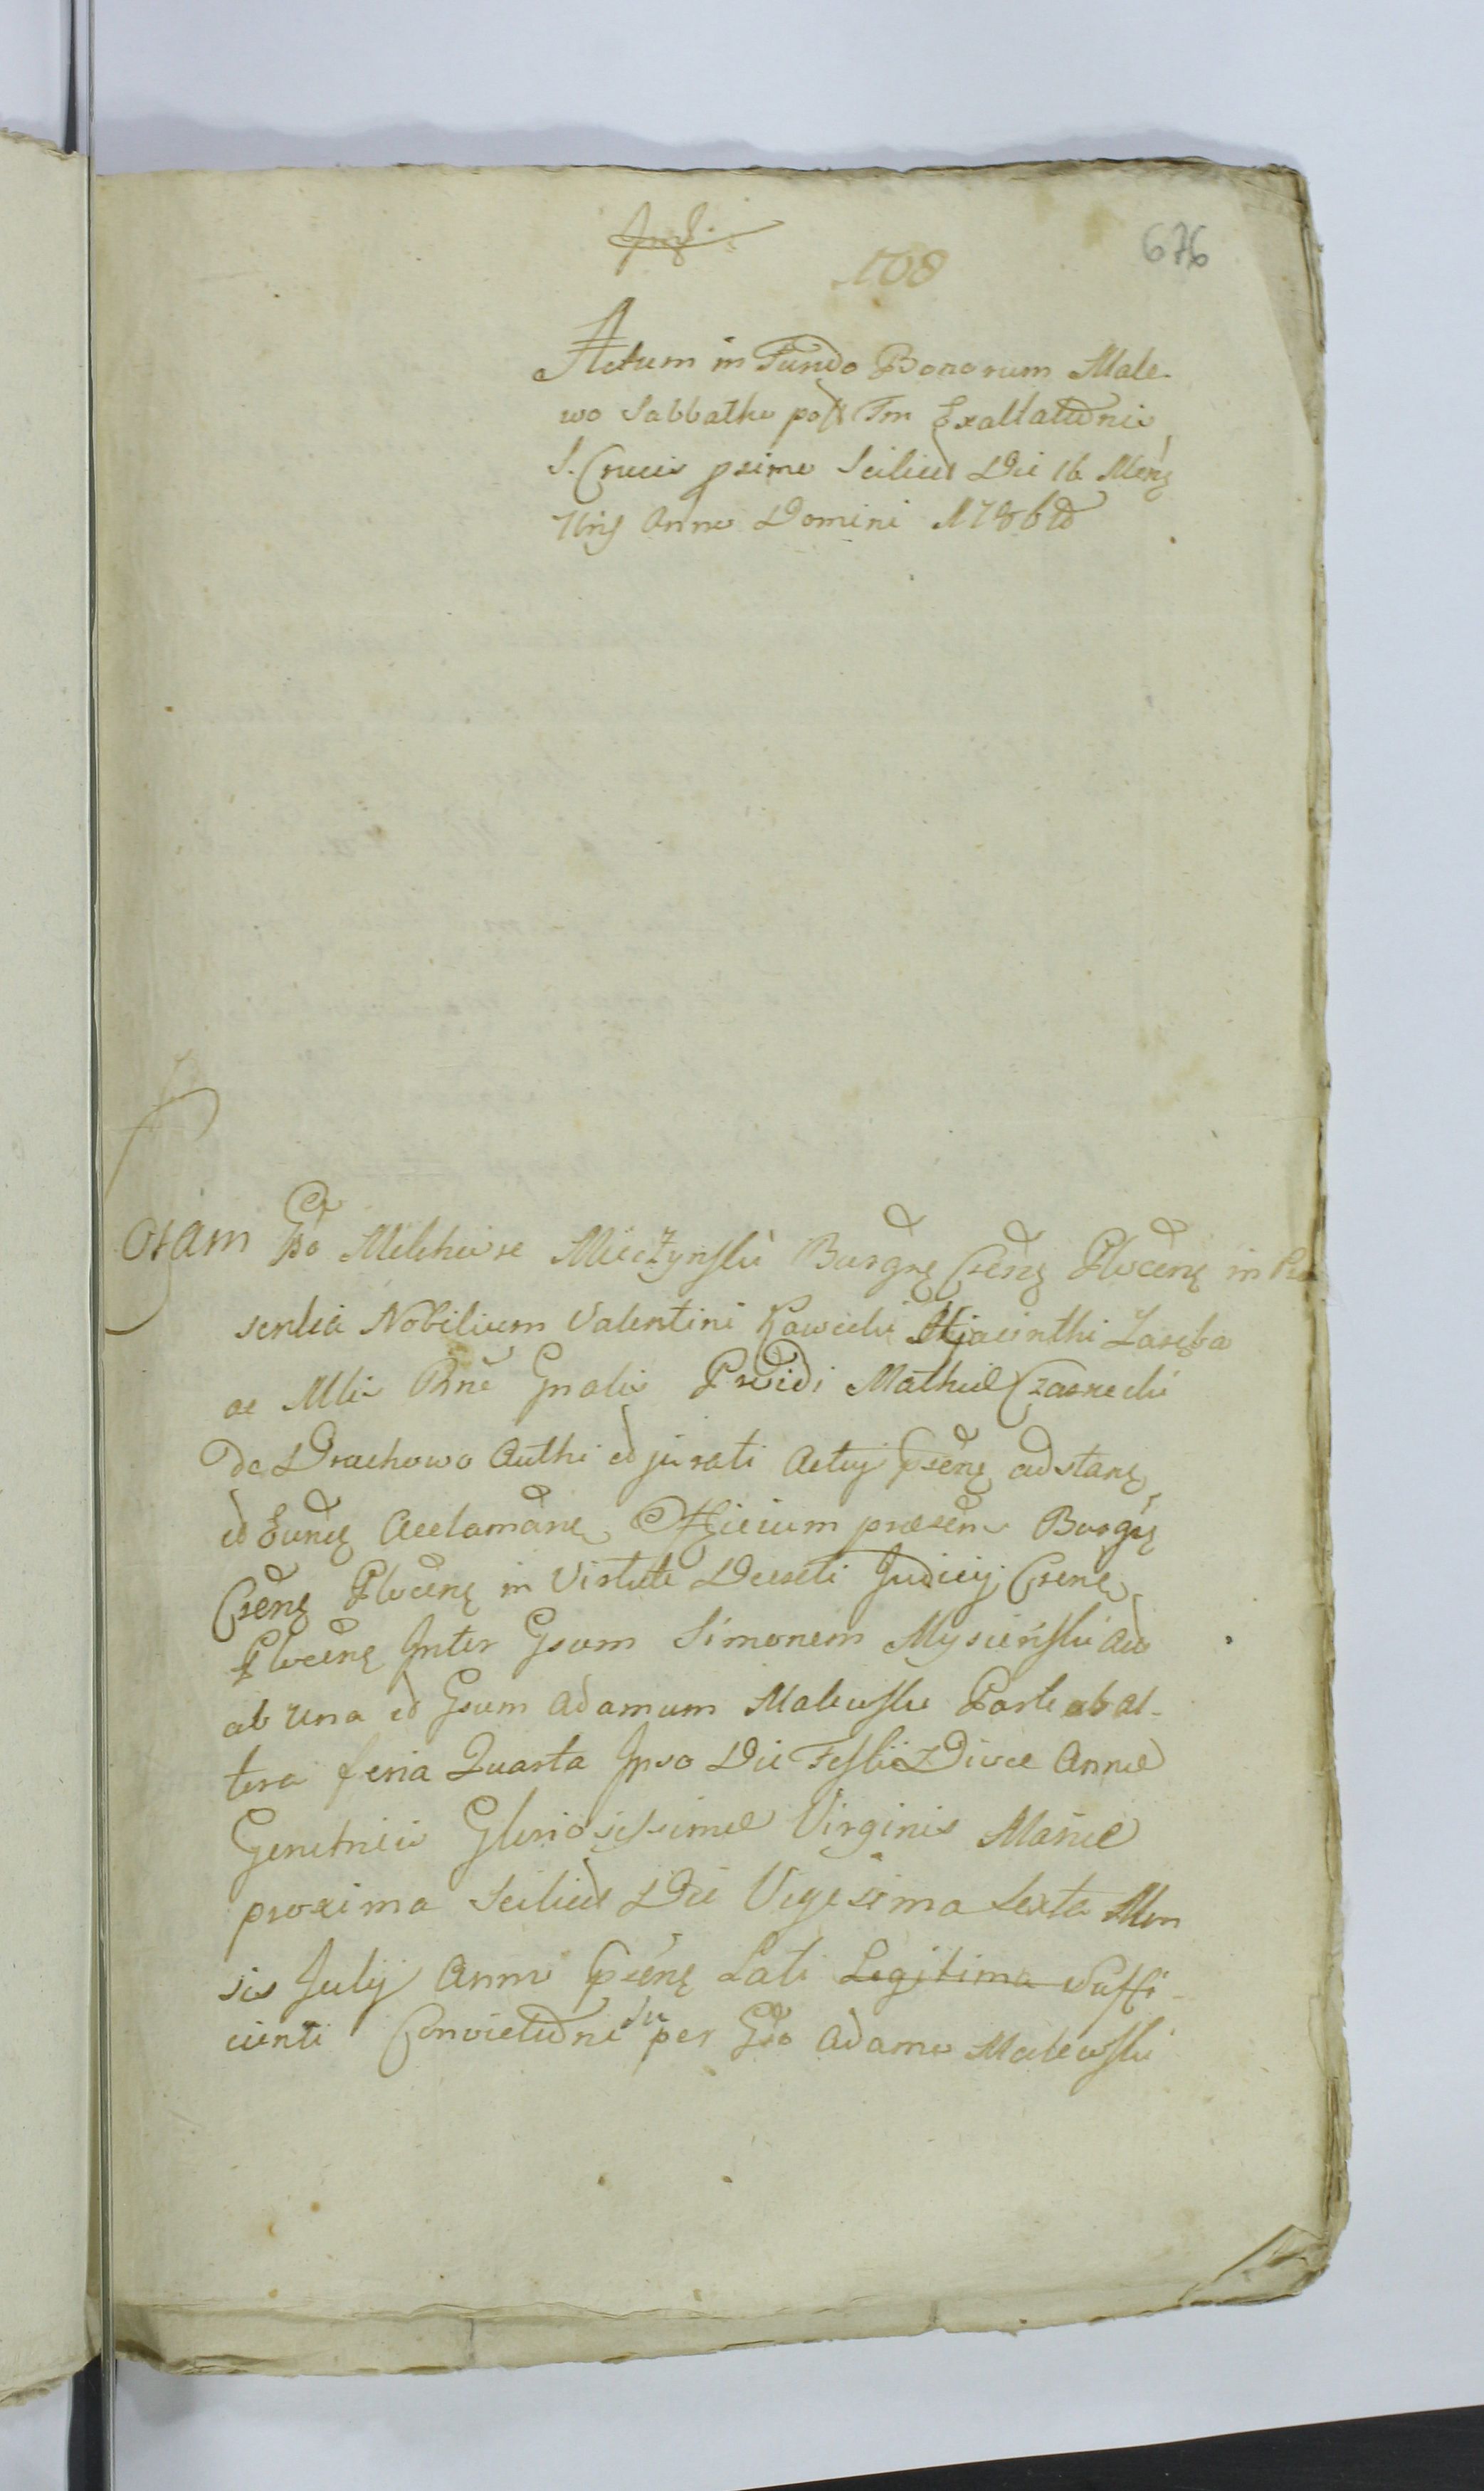 108
676
Actum in Fundo Bonorum Male-
wo Sabbatho post Fm Exaltatnis
S. Crucis primo Scilicet Die 16 Menq
7bris Anno Domini 1786to
Oram Gso Melchiore Mieczynski Burgrę Csenę Plocenę in Prae
sentia Nobilium Valentini Kawecki Hjacinthi Zaręba
ac Mli Rni Gnalis Providi Mathiae Czarnecki
de Drachowo Authi et jurati Actuj psenę adstanę
et Eunę Acclamanę Officium praesens Burgię
Csenę Plocenę in Virtute Decreti Judicij Csenę
Plocenę Inter Gsum Simonem Mysieński Act
ab una et Gsum Adamum Malewski Parte ab al-
tera feria Quarta Ipso Die Festi Divae Annae
Genetricis Gloriosissimae Virginis Mariae
proxima Scilicet Die Vigesima Sexta Men
sis Julij Anni psenę Lati Legitima Suffi-
cienti Convictioni per Gso Adamo Malewski